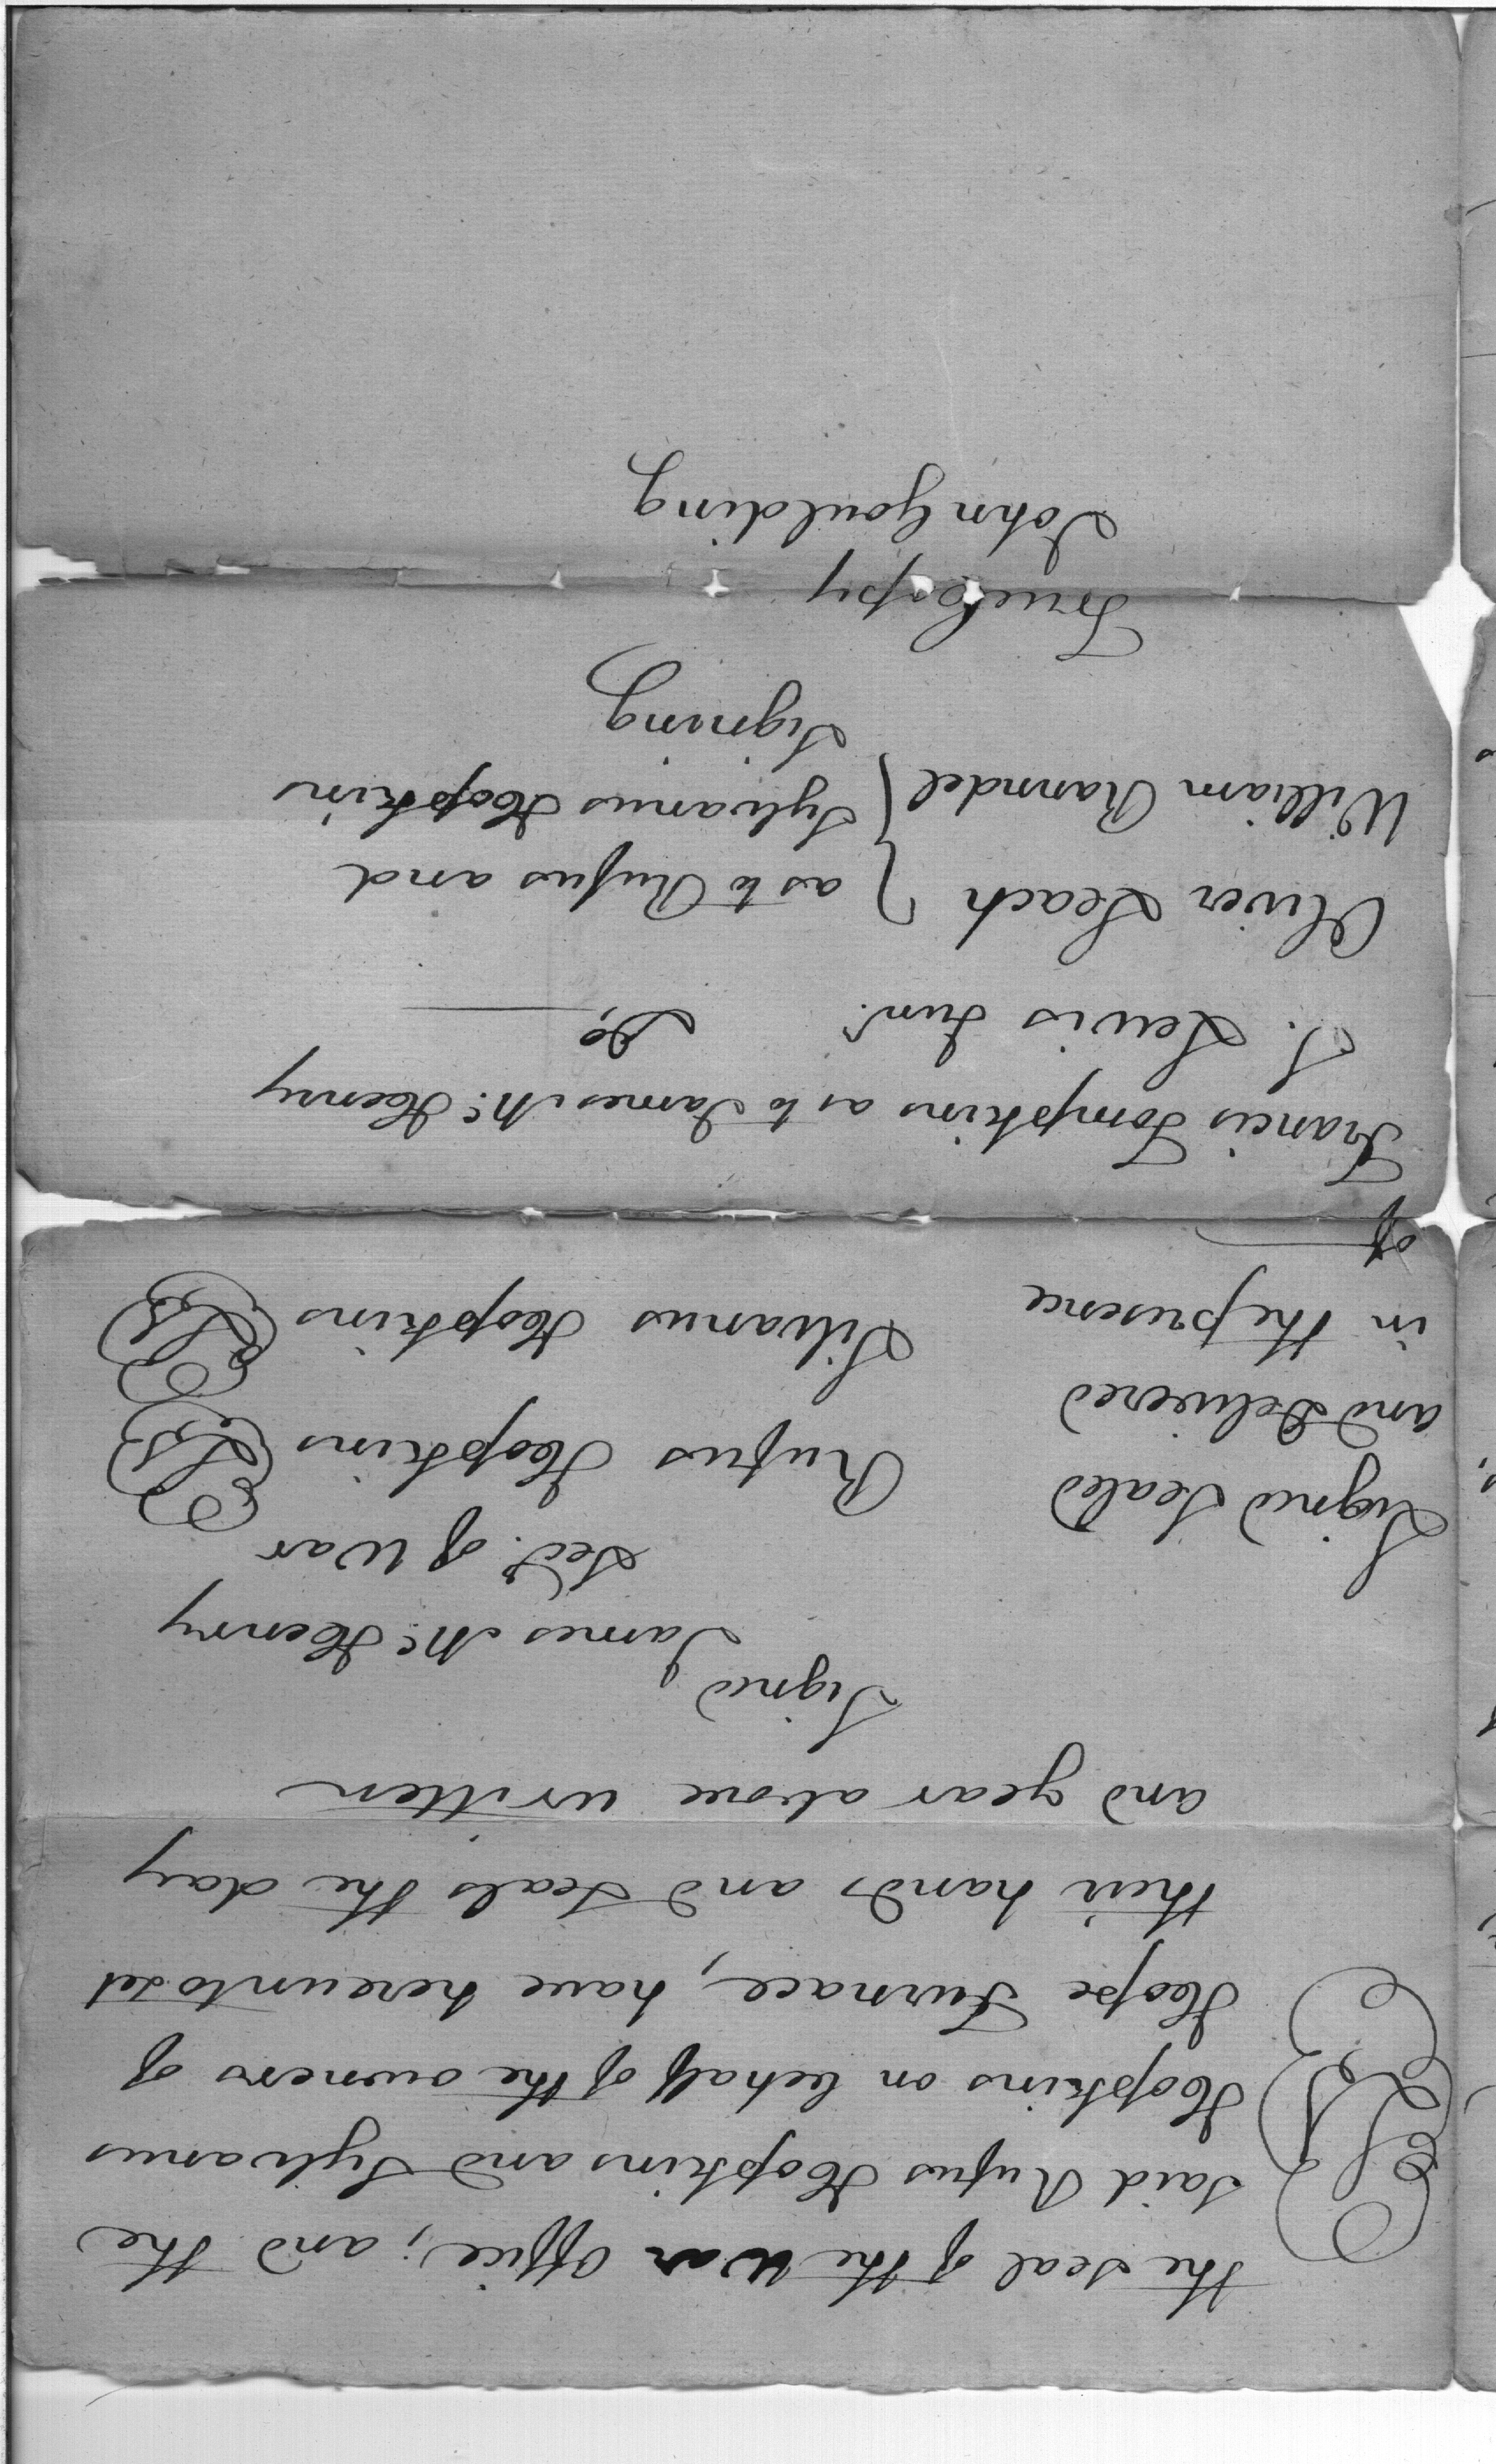 the seal of the war office; and the
said Rufus Hopkins and Sylvanus
Hopkins on behalf of the owners of
Hope Furnace, have hereunto set
their hands and seals the day
and year above written
LS
Signed
James Mc. Henry
Secy. of War
Signed Sealed
and Delivered
in the presence
of
Rufus Hopkins LS
Silvanus Hopkins LS
Francis Tompkins as to James Mc. Henry
S. Lewis Junr. Do.
Oliver Leach } as to Rufus and
William Ranndel } Sylvanus Hopkins
Signing
True Copy
John Goulding